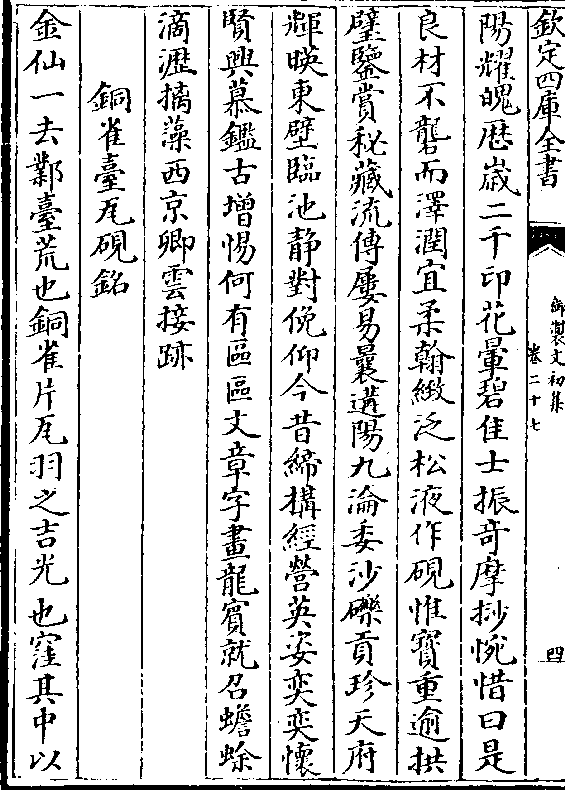 欽定四庫全書
御製文初集
卷二十七
四
陽耀魄歴嵗二千印花暈碧佳士振奇摩挱惋惜曰是
良材不礱而澤潤宜柔翰緻泛松液作硯惟寳重逾拱
璧鑒賞秘藏流傳屢易曩遘陽九淪委沙礫貢珍天府
輝暎東壁臨池静對俛仰今昔締構經營英姿奕奕懷
賢興慕鑑古增惕何有區區文章字畫龍賓就召蟾蜍
滴瀝摛藻西京卿雲接跡
銅雀臺瓦硯銘
金仙一去鄴臺荒也銅雀片瓦羽之吉光也窪其中以